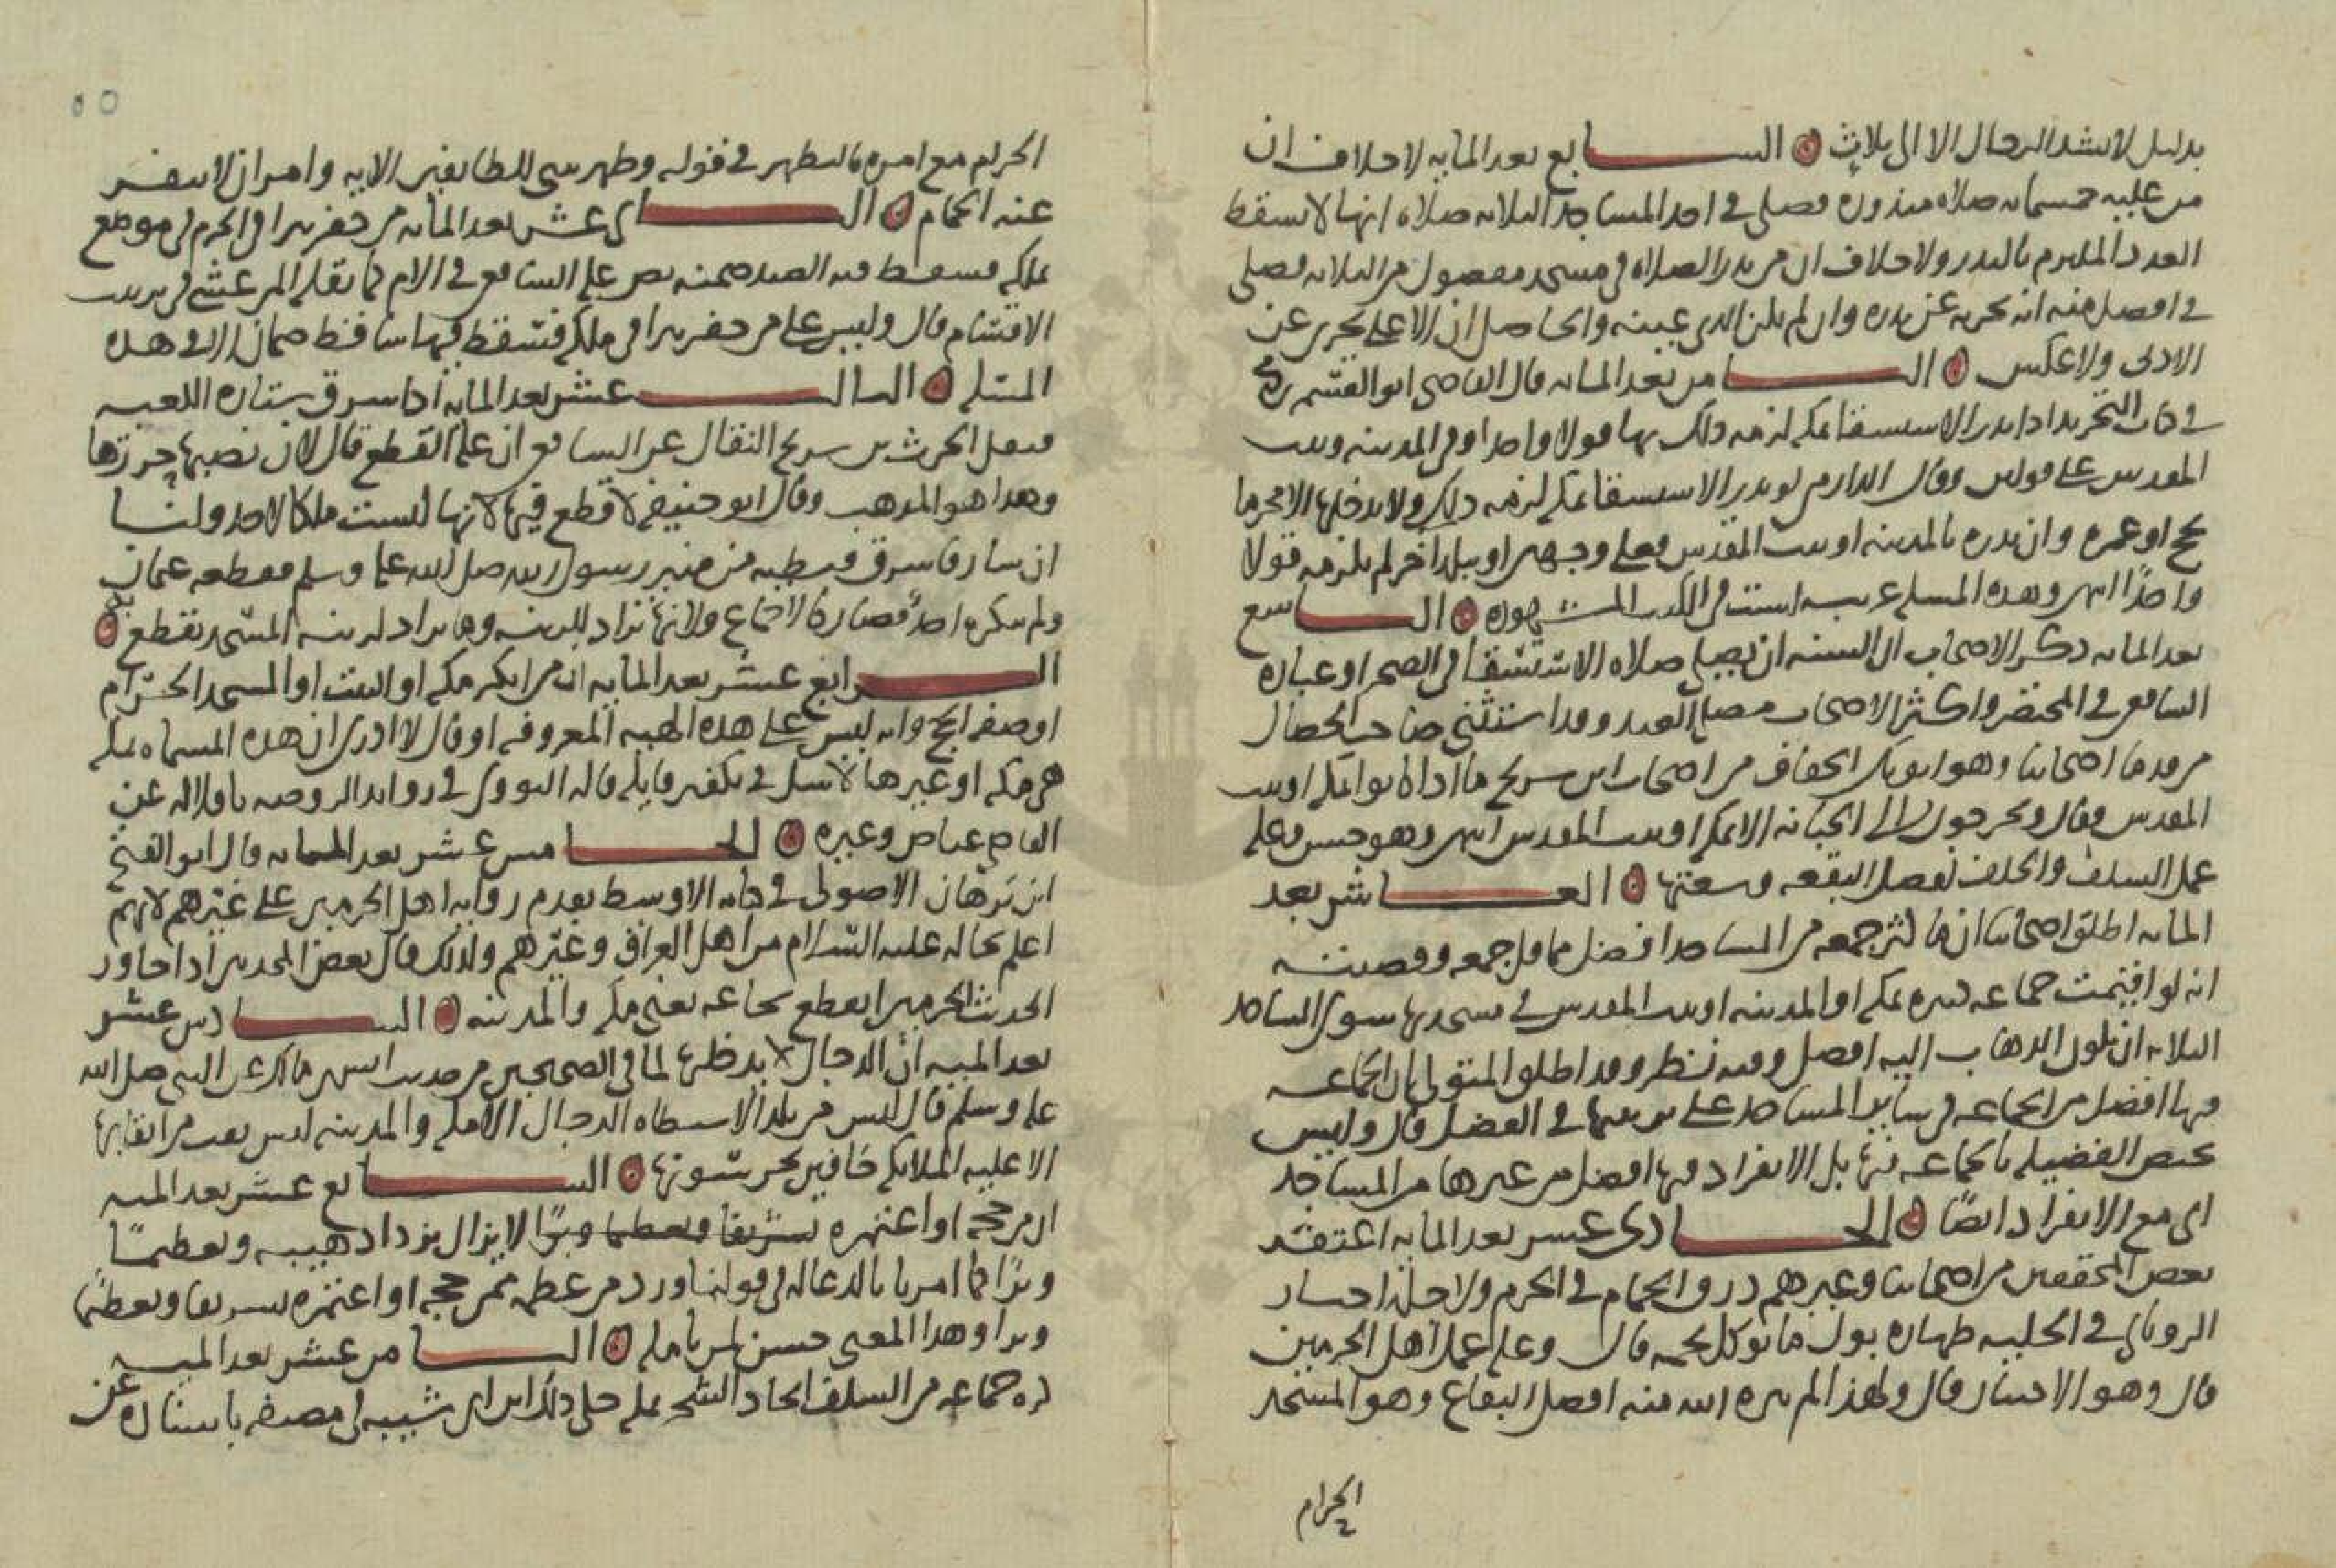 بدليل لا تشد الرحال الا الى ثلاث ۞ السابع بعد المايه لا خلاف ان
من عليه خمسمايه صلاه منذوره فصلى في احد المساجد الثلاثه صلاه انها لا تسقط
العدد الملتزم بالنذر ولا خلاف ان من نذر الصلاه في مسجد مفضول من الثلاثه فصلى
في افضل منه انه يجزيه عن نذره وان لم يكن الذي عينه والحاصل ان الاعلى يجزي عن
الادنى ولا عكس ۞ الثامن بعد المايه قال القاضي ابو القسم بن كج
في كتاب التجريد اذا نذر الاستسقا بمكه لزمه ذلك بها قولا واحدا وفي المدينه وبيت
المقدس على قولين وقال الدارمي لو نذر الاستسقا بمكه لزمه ذلك ولا يدخلها الا محرما
بحج او عمره وان نذره بالمدينه او بيت المقدس فعلى وجهين او ببلد اخر لم يلزمه قولا
واحدًا انتهى وهذه المسله غريبه ليست في الكتب المشهوره ۞ التاسع
بعد المايه ذكر الاصحاب ان السنه ان يصلى صلاه الاستسقا في الصحرا وعباره
الشافعي في المختصر واكثر الاصحاب مصلى العيد وقد استثنى صاحب الخصال
من قدما اصحابنا وهو ابو بكر الخفاف من اصحاب ابن سريج ما اذا كانوا بمكه او بيت
المقدس وقال ويخرجون الى الجبانه الا بمكه او بيت المقدس انتهى وهو حسن وعليه
عمل السلف والخلف لفضل البقعه وسعتها ۞ العاشر بعد
المايه اطلق اصحابنا ان ما كثر جمعه من المساجد افضل مما قل جمعه وقضيته
انه لو اقيمت جماعه كثيره بمكه او المدينه او بيت المقدس في مسجد بها سوى المساجد
الثلاثه ان يكون الذهاب اليه افضل وفيه نظر وقد اطلق المتولي بان الجماعه
فيها افضل من الجماعه في ساير المساجد على ترتيبها في الفضل قال وليس
يختص الفضيله بالجماعه فيها بل الانفراد فيها افضل من غيرها من المساجد
اي مع الانفراد ايضًا ۞ الحادي عشر بعد المايه اعتقد
بعض المحققين من اصحابنا وغيرهم ذرق الحمام في الحرم ولاجله اختار
الروياني في الحليه طهاره بول ما يوكل لحمه قال وعليه عمل اهل الحرمين
قال وهو الاختيار قال ولهذا لم ينزه الله منه افضل البقاع وهو المسجد
الحرام
الحرام مع امره بالتطهر في قوله وطهر بيتي للطايفين الايه وامر ان لا ينفر
عنه الحمام ۞ الثاني عشر بعد المايه من حفر بيرا في الحرم في موضع
يملكه فسقط فيه الصيد ضمنه نص عليه الشافعي في الام كما نقله المرعشي في ترتيب
الاقسام قال وليس على من حفر بيرا في ملكه فسقط فيها ساقط ضمان الا في هذه
المسله ۞ الثالث عشر بعد المايه اذا سرق ستاره الكعبه
فنقل الحرث بن سريج النقال عن الشافعي ان عليه القطع قال لان نصبها حرزها
وهذا هو المذهب وقال ابو حنيفه لا قطع فيها لانها ليست ملكا لاحد ولنا
ان سارقا سرق قبطيه من منبر رسول الله صلى الله عليه وسلم فقطعه عثمان
ولم ينكره احدٌ فصار كالاجماع ولانها تراد للزينه وما يراد لزينه المسجد يقطع به ۞
الرابع عشر بعد المايه ان من انكر مكه او البيت او المسجد الحرام
او صفه الحج وانه ليس على هذه الهيه المعروفه او قال لا ادري ان هذه المسماه بمكه
هي مكه او غيرها لا شك في تكفير قايله قاله النووي في زوايد الروضه ناقلا له عن
القاضي عياض وغيره ۞ الخامس عشر بعد المايه قال ابو الفتح
ابن برهان الاصولي في كتابه الاوسط يقدم روايه اهل الحرمين على غيرهم لانهم
اعلم بحاله عليه السلام من اهل العراق وغيرهم ولذلك قال بعض المحدثين اذا جاوز
الحديث الحرمين انقطع نخاعه يعني مكه والمدينه ۞ السادس عشر
بعد الميه ان الدجال لا يدخلها لما في الصحيحين من حديث انس بن مالك عن النبي صلى الله
عليه وسلم قال ليس من بلد الا سيطاه الدجال الا مكه والمدينه ليس نقب من انقابها
الا عليه الملايكه حافين يحرسونها ۞ السابع عشر بعد الميه
ان من حجه او اعتمره تشريفا وتعظيما وبرًا لا يزال يزداد هيبه وتعظيمًا
وبرًا كما امرنا بالدعا له في قولنا وزد من عظمه ممن حجه او اعتمره تشريفا وتعظيمًا
وبرا وهذا المعنى حسن لمن تامله ۞ الثامن عشر بعد الميه
كره جماعه من السلف اتخاذ السُّجح بمكه حكى ذلك ابن ابي شيبه في مصنفه باسناده عن